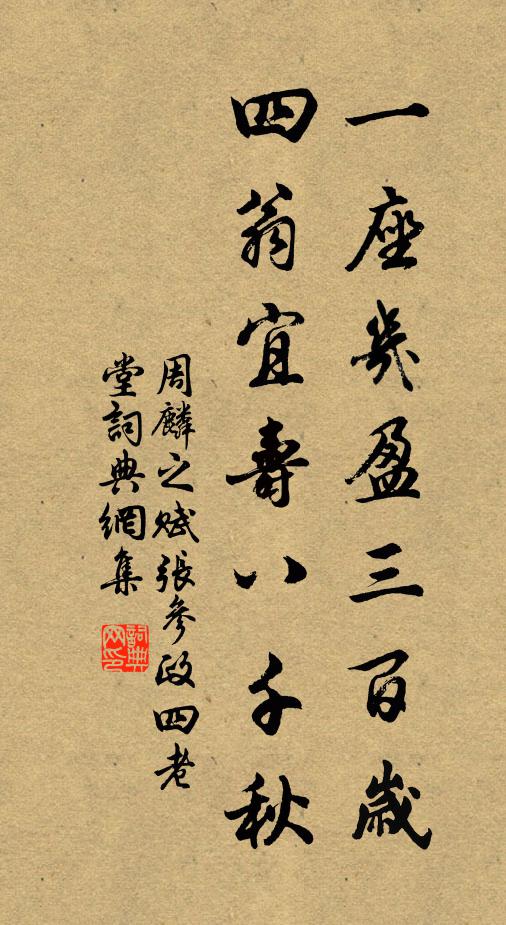 一座幾盈三百歲
四翁宜壽八千秋
周麟之賦張參政四老
堂詞典網集
詞典网印